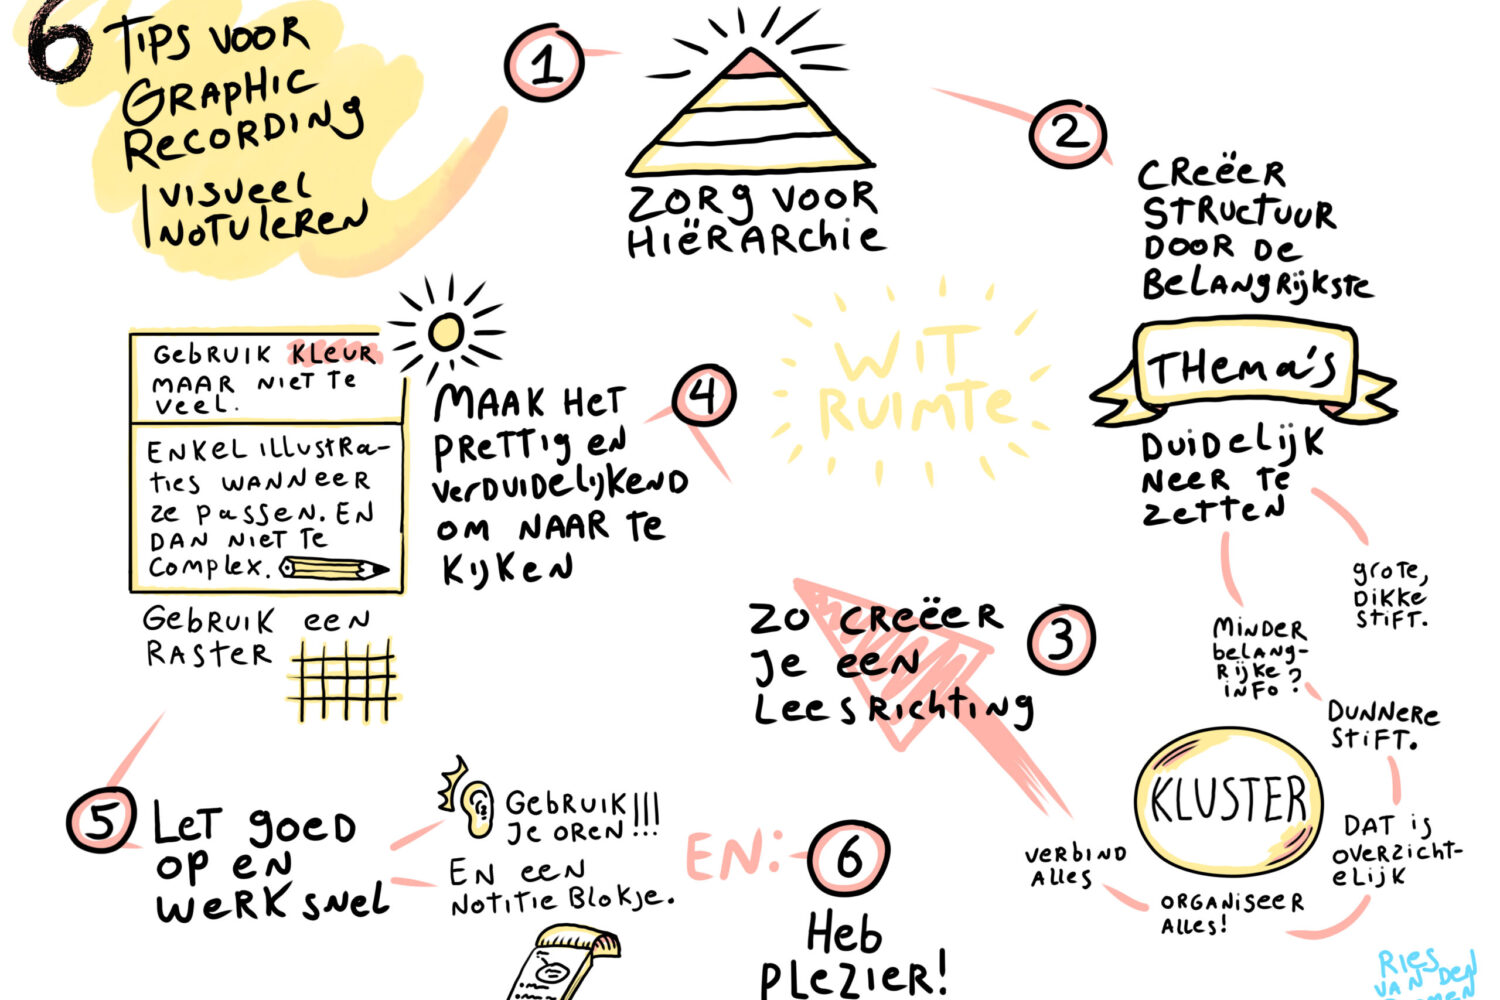 6 TIPS VOOR
GRAPHIC
RECORDING
VISUEEL
NOTULEREN
1
ZORG VOOR
HIËRARCHIE
2
CREËER
STRUCTUUR
DOOR DE
BELANGRIJKSTE
THEMA'S
DUIDELIJK
NEER TE
ZETTEN
GROTE,
DIKKE
STIFT.
MINDER
BELANG-
RIJKE
INFO?
DUNNERE
STIFT.
DAT IS
OVERZICHT-
ELIJK
KLUSTER
ORGANISEER
ALLES!
VERBIND
ALLES
3
ZO CREËER
JE EEN
LEESRICHTING
WIT
RUIMTE
4
MAAK HET
PRETTIG EN
VERDUIDELIJKEND
OM NAAR TE
KIJKEN
GEBRUIK KLEUR
MAAR NIET TE
VEEL.
ENKEL ILLUSTRA-
TIES WANNEER
ZE PASSEN. EN
DAN NIET TE
COMPLEX.
GEBRUIK EEN
RASTER
5
LET GOED
OP EN
WERK SNEL
GEBRUIK
JE OREN!!!
EN EEN
NOTITIE BLOKJE.
EN:
6
HEB
PLEZIER!
RIES
VAN DEN